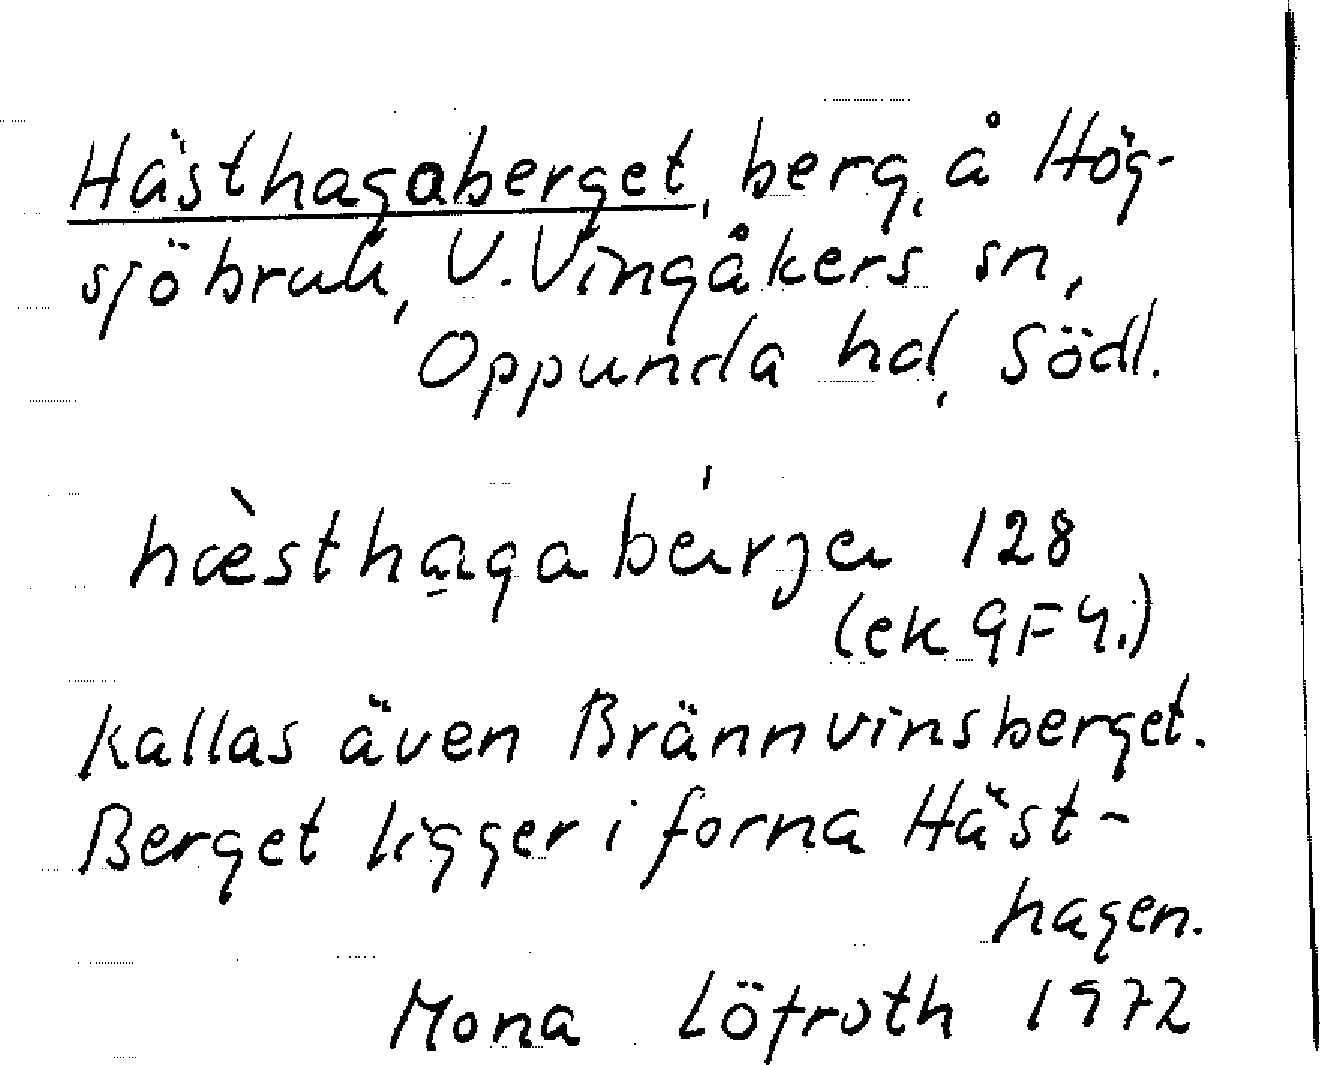 Hästhagaberget, berg, å Hög-
sjöbruk, V. Vingåkers sn,
Oppunda hd, Södl.
hæ̀sthaga bǽrja 128
(ek 9F4.)
kallas även Brännvinsberget.
Berget ligger i forna Häst-
hagen.
Mona Löfroth 1972